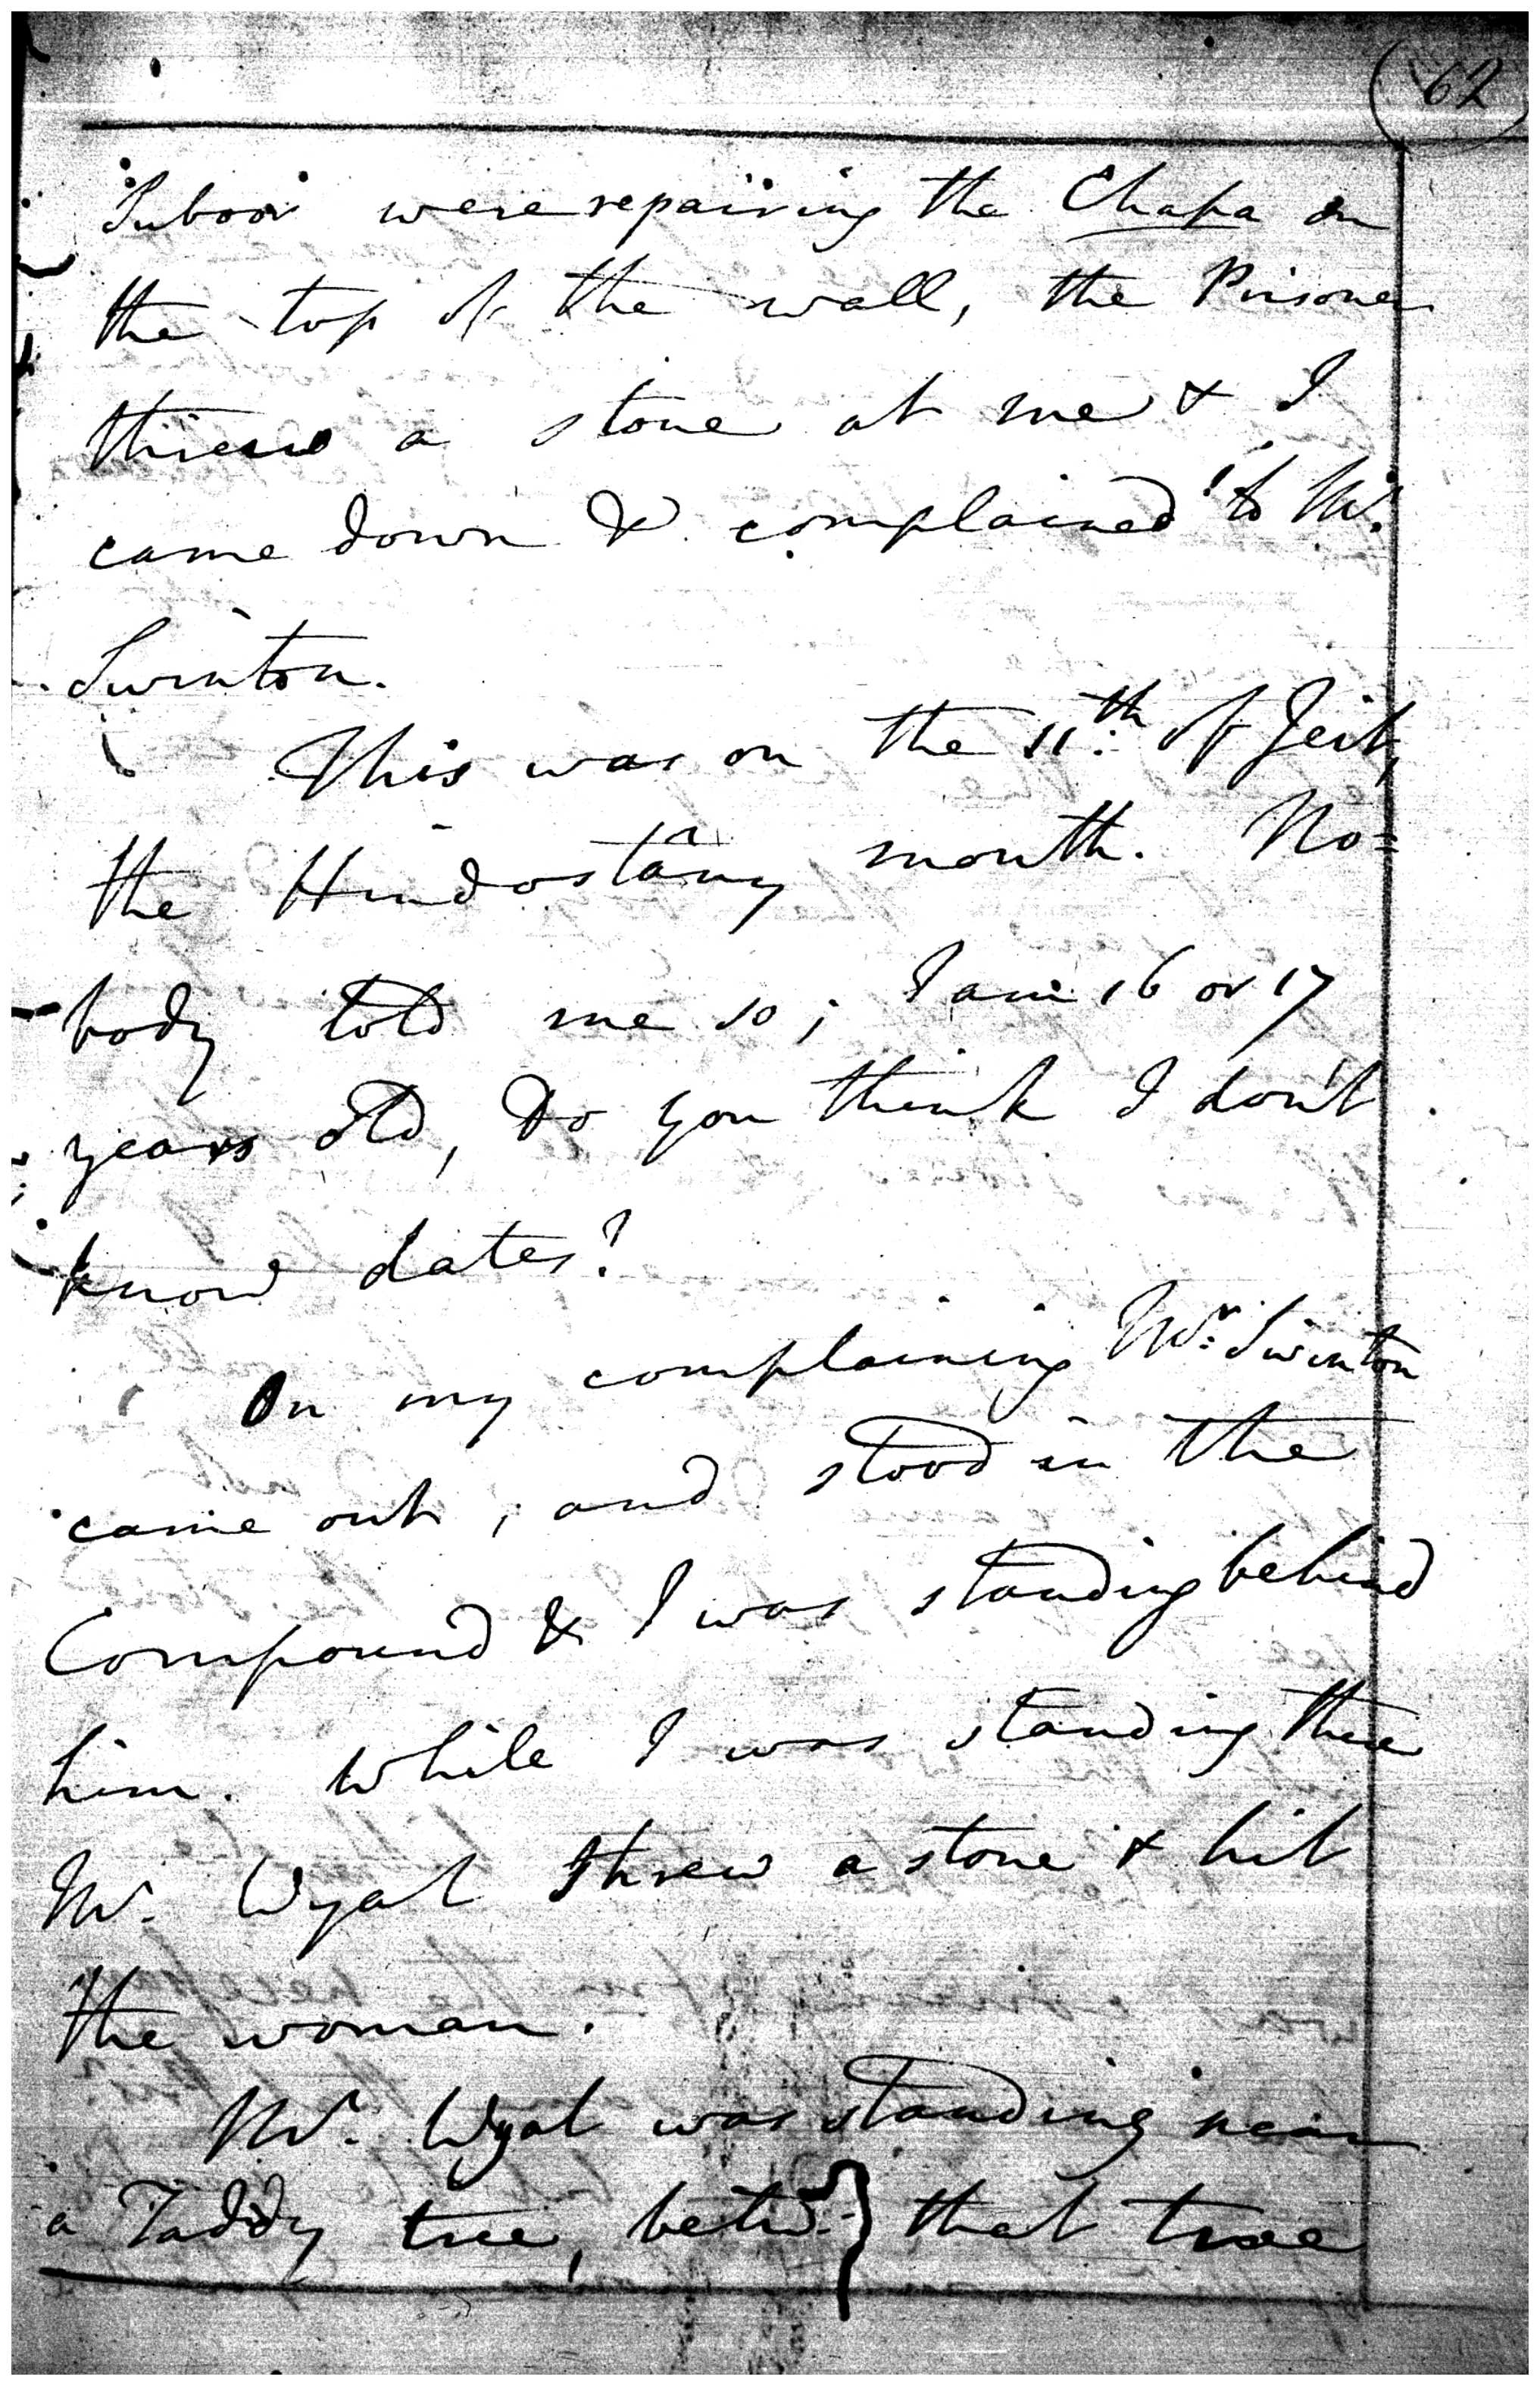 62
Suboor were repairing the Chapa on
the top of the wall, the Prisoner
threw a stone at me & I
came down & complained to Mr.
Swinton.
This was on the 11th of Jeit,
the Hindostâny month. No=
body told me so; I am 16 or 17
years old, Do you think I don't
know dates?
On my complaining Mr. Swinton
came out, and stood in the
Compound & I was standing behind
him. While I was standing there
Mr. Wyat threw a stone & hit
the woman.
Mr. Wyat was standing near
a Taddy tree, betw. that tree